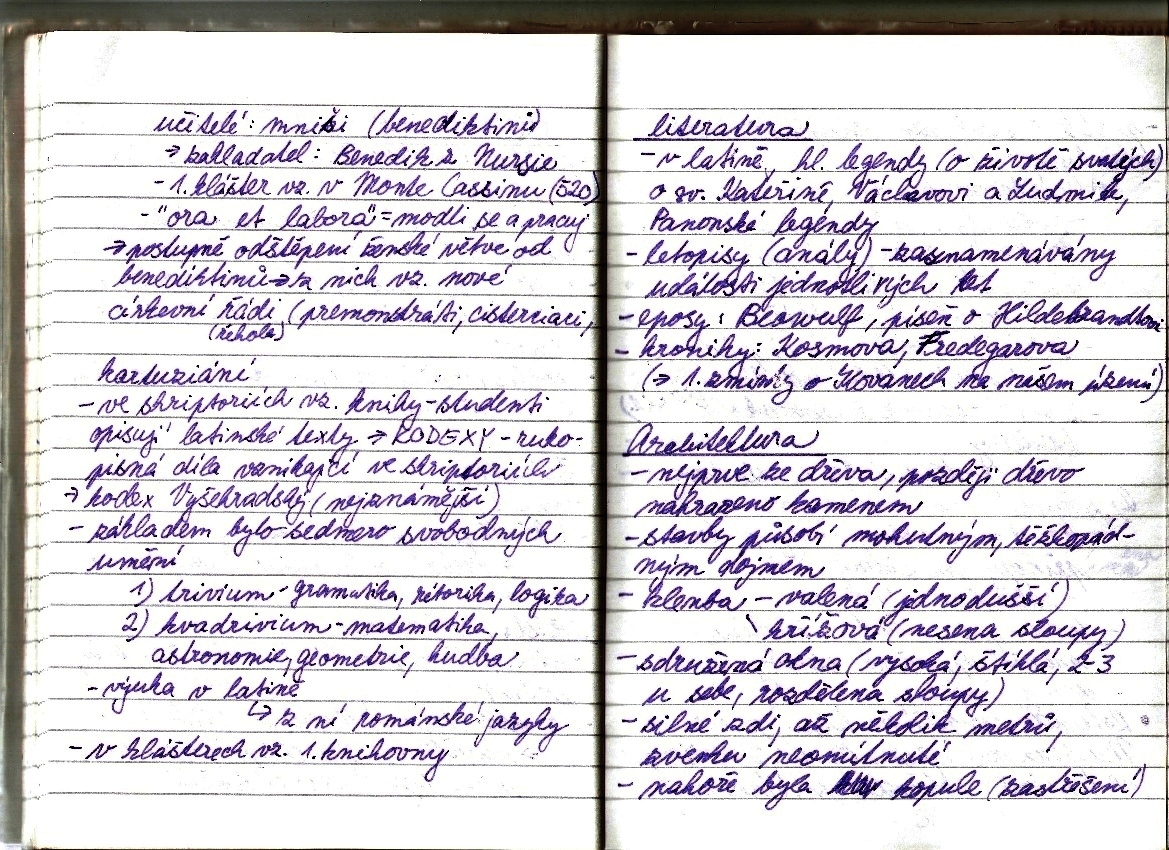 učitelé: mniši (benediktini)
→ zakladatel: Benedikt z Nursie
- 1. klášter vz. v Monte Cassinu (520)
- "ora et labora" = modli se a pracuj
→ postupné odštěpení ženské větve od
benediktinů → z nich vz. nové
církevní řádi (premonstráti, cisterciaci,
(řehole)
kartuziáni
- ve skriptoriích vz. knihy - studenti
opisují latinské texty → KODEXY - ruko-
pisná díla vznikající ve skriptoriích
→ kodex Vyšehradský (nejznámější)
- základem bylo sedmero svobodných
umění
1) trivium - gramatika, rétorika, logika
2) kvadrivium - matematika,
astronomie, geometrie, hudba
- výuka v latině
↳ z ní románské jazyky
- v klášterech vz. 1. knihovny
literatura
- v latině, hl. legendy (o životě svatých)
o sv. Kateřině, Václavovi a Ludmile,
Panonské legendy
- letopisy (análý) - zaznamenávány
události jednotlivých let
- eposy: Beowulf, píseň o Hildebrandtovi
- kroniky: Kosmova, Fredegarova
(→ 1. zmínky o Slovanech na našem území)
Architektura
- nejprve ze dřeva, později dřevo
nahrazeno kamenem
- stavby působí mohutným, těžkopád-
ným dojmem
- klenba - valená (jednodušší)
\ křížová (nesena sloupy)
- sdružená okna (vysoká, štíhlá, 2-3
u sebe, rozdělena sloupy)
- silné zdi, až několik metrů,
zvenku neomítnuté
- nahoře byla kopule (zastřešení)